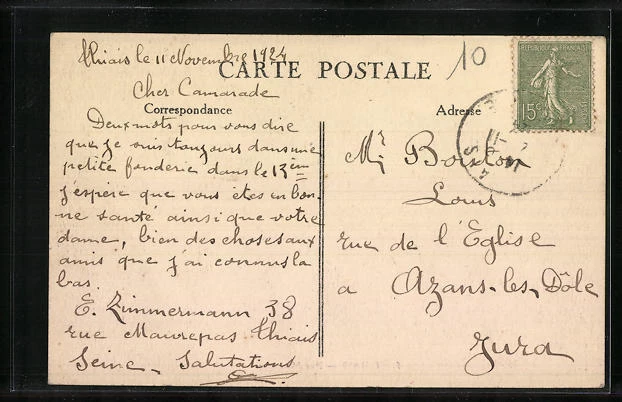 Thiais le 11 Novembre 1924
CARTE POSTALE
10
RÉPUBLIQUE FRANÇAISE
15c
Cher Camarade
Correspondance
Adresse
Deux mots pour vous dire
que je suis toujours dans une
petite fonderie dans le 13ème
j'espère que vous êtes en bon-
ne santé ainsi que votre
dame, bien des choses aux
amis que j'ai connus la
bas.
E. Zimmermann 38
rue Maurepas Thiais
Seine - Salutations
Mr
Louis
rue de l'Eglise
a Azans-les-Dôle
Jura